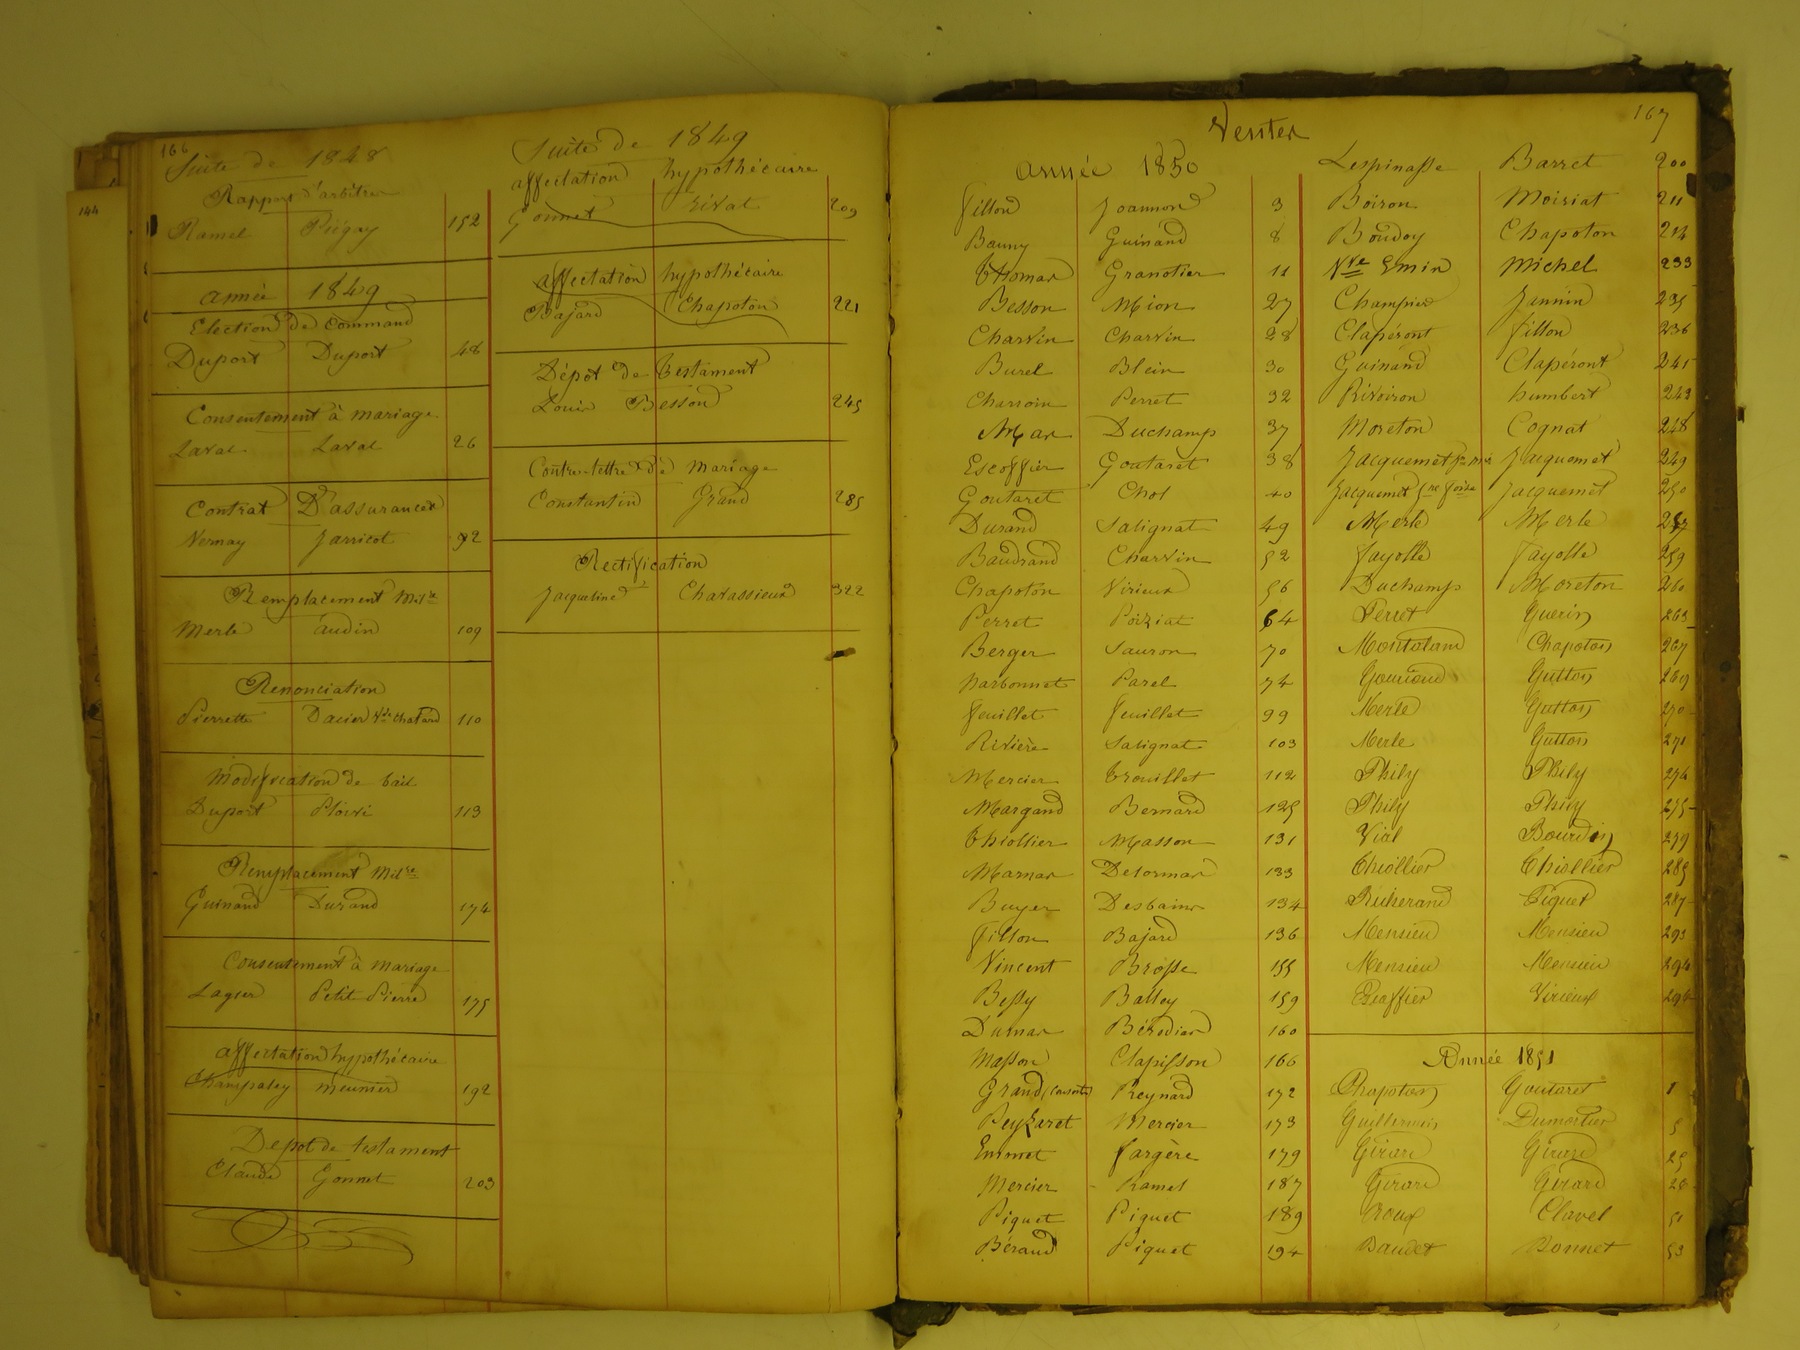 144
166
Suite de 1848
Rapport d'arbitre
Ramel Piégay 152
année 1849
Election de Command
Duport Duport 48
Consentement à mariage
Laval Laval 26
Contrat D'assurances
Vernay Jarricot 92
Remplacement Milre
Merle audin 109
Renonciation
Pierrette Dacier Vve Chatard 110
Modification de bail
Duport Ploivi 113
Remplacement Milre
Guinand Durand 174
Consentement à mariage
Lagier Petit Pierre 175
affectation hypothécaire
Champaley meunier 192
Depot de testament
Claude Gonnet 203
Suite de 1849
affectation hypothécaire
Gonnet Rivat 209
affectation hypothécaire
Bajard Chapoton 221
Dépôt de testament
Louis Besson 245
Contre-lettre de mariage
Constantin Grand 285
Rectification
Jacqueline Chavassieux 322
167
Ventes
année 1850
Fillon Joannon 3
Bauny Guinand 8
Thomas Granotier 11
Besson Mion 27
Charvin Charvin 28
Burel Blein 30
Charroin Perret 32
Mas Duchamp 37
Escoffier Goutaret 38
Goutaret Chol 40
Durand Salignat 49
Baudrand Charvin 52
Chapoton Virieux 56
Perret Poiziat 64
Berger Sauron 70
Narbonnet Parel 74
Feuillet Feuillet 99
Rivière Salignat 103
Mercier Trouillet 112
Margand Bernard 125
Thiollier Masson 131
Marnas Delormas 133
Buyer Desbains 134
Fillon Bajard 136
Vincent Brosse 155
Bessy Balley 159
Dumas Bérodier 160
Masson Clapisson 166
Grand (Consorts) Reynard 172
Peyzaret Mercier 173
Emmet Fargère 179
Mercier Ramel 187
Piquet Piquet 189
Béraud Piquet 194
Lespinasse Barret 200
Boiron Moiriat 211
Boudoy Chapoton 214
Vve Emin Michel 233
Champier Jannin 235
Clapéront Fillon 236
Guinand Clapéront 241
Rivoiron humbert 243
Moreton Cognat 248
Jacquemet Jacquemet 249
Jacquemet Jacquemet 250
Merle Merle 257
Fayolle Fayolle 259
Duchamp Moreton 260
Perret Guerin 263
Montaland Chapoton 267
Gounoud Gutton 269
Merle Gutton 270
Merle Gutton 271
Phily Phily 274
Phily Phily 275
Vial Bourdin 279
Thiollier Thiollier 285
Richerand Piquet 287
Mensieu Mensieu 293
Mensieu Mensieu 294
Graffier Virieux 296
Année 1851
Chapoton Goutaret 1
Guillermin Dumortier 5
Girard Girard 25
Girard Girard 26
Roux Clavel 51
Baudet Bonnet 53